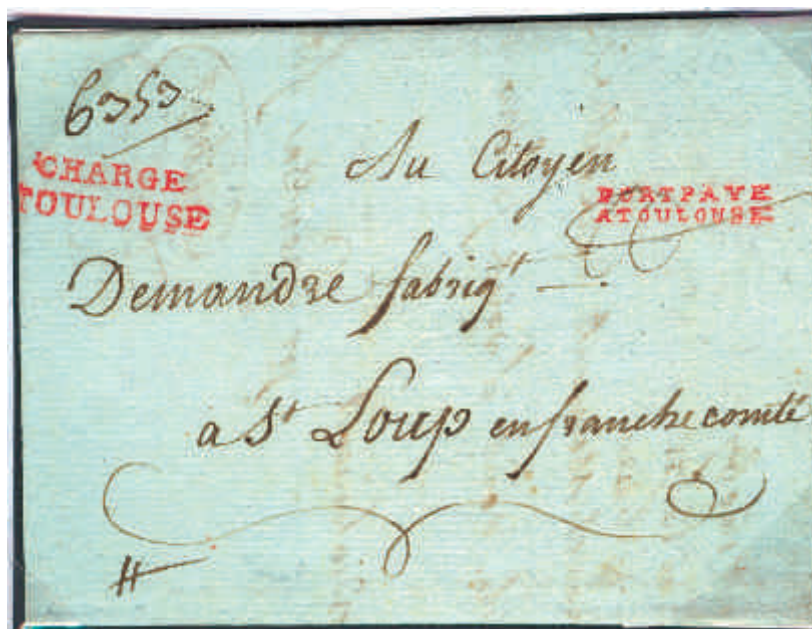 6353
CHARGE
TOULOUSE
Au Citoyen
PORT PAYE
A TOULOUSE
Demandre fabriqt
a St Loup en franche comté